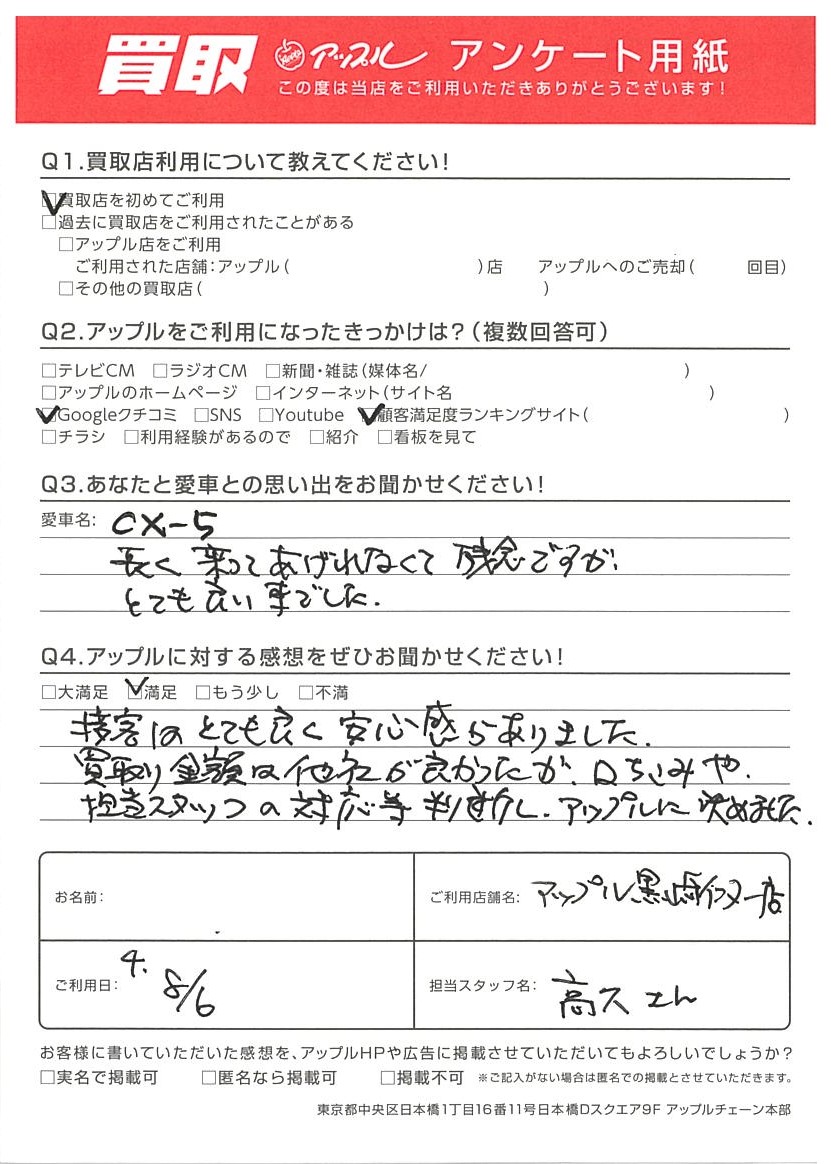 買取 アップル アンケート用紙
この度は当店をご利用いただきありがとうございます！
Q1.買取店利用について教えてください！
☑買取店を初めてご利用
□過去に買取店をご利用されたことがある
□アップル店をご利用
ご利用された店舗：アップル（ ）店 アップルへのご売却（ 回目）
□その他の買取店（ ）
Q2.アップルをご利用になったきっかけは？（複数回答可）
□テレビCM □ラジオCM □新聞・雑誌（媒体名/ ）
□アップルのホームページ □インターネット（サイト名 ）
☑Googleクチコミ □SNS □Youtube ☑顧客満足度ランキングサイト（ ）
□チラシ □利用経験があるので □紹介 □看板を見て
Q3.あなたと愛車との思い出をお聞かせください！
愛車名： CX-5
長く乗ってあげれなくて残念ですが、
とても良い車でした.
Q4.アップルに対する感想をぜひお聞かせください！
□大満足 ☑満足 □もう少し □不満
接客はとても良く安心感がありました.
買取り金額は他社が良かったが、口ちこみや、
担当スタッフの対応等判断し、アップルに決めました.
お名前：
ご利用店舗名： アップル黒崎 店
ご利用日： 4. 8/6
担当スタッフ名： 高久さん
お客様に書いていただいた感想を、アップルHPや広告に掲載させていただいてもよろしいでしょうか？
□実名で掲載可 □匿名なら掲載可 □掲載不可 ※ご記入がない場合は匿名での掲載とさせていただきます。
東京都中央区日本橋1丁目16番11号日本橋Dスクエア9F アップルチェーン本部